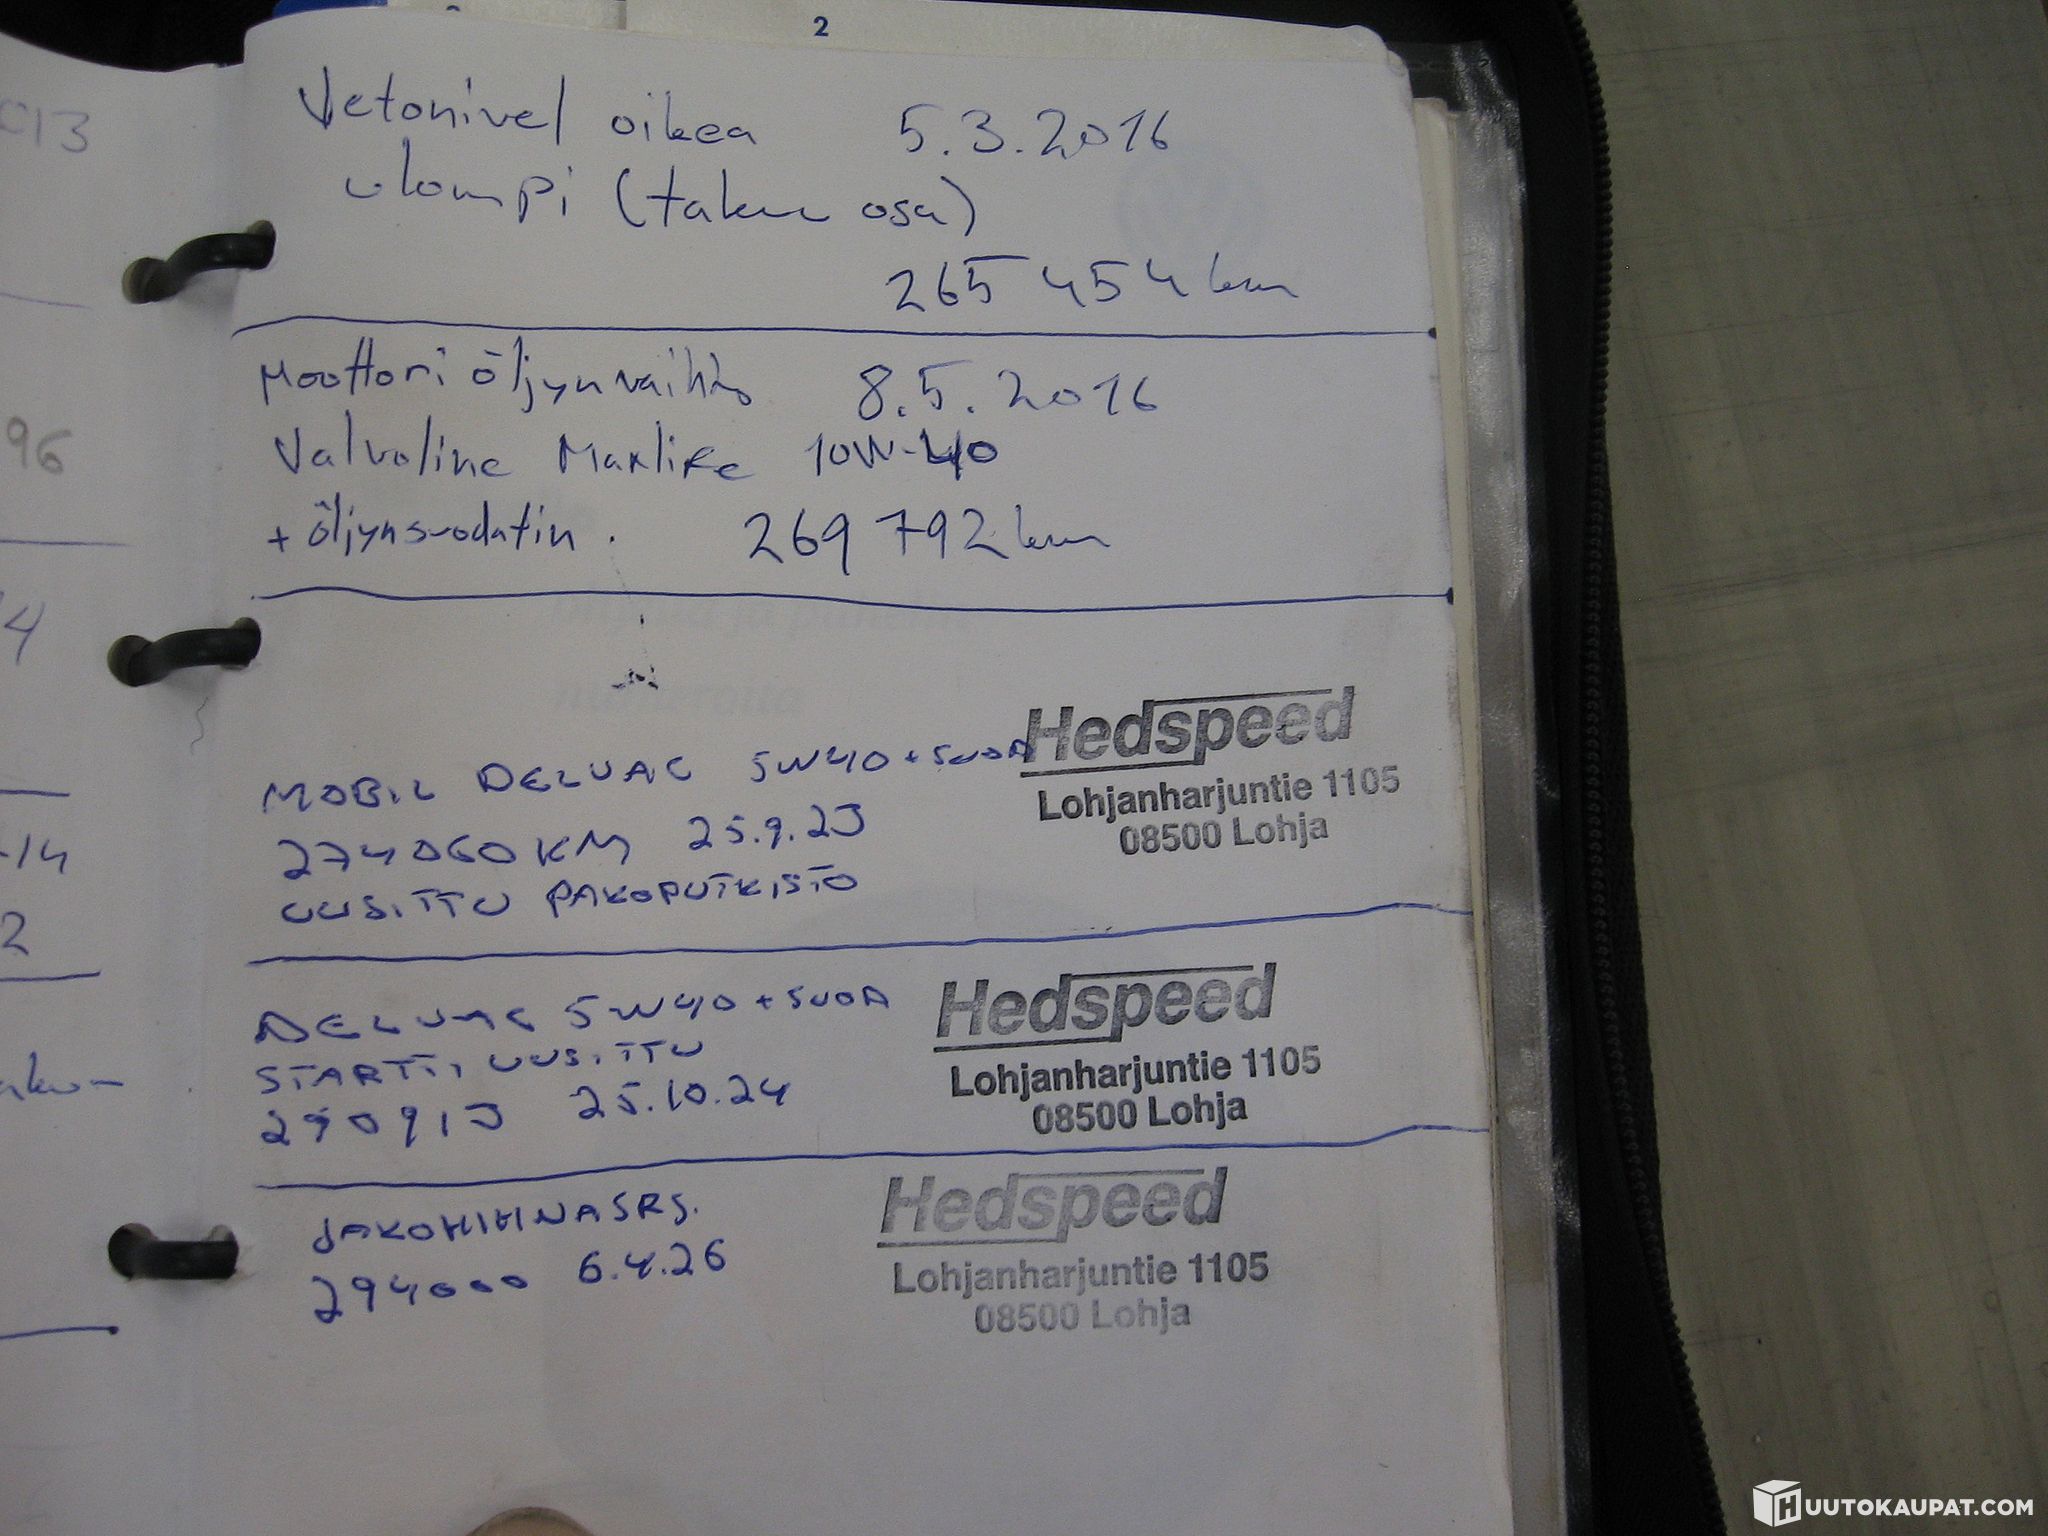 2
Vetonivel oikea 5.3.2016
ulompi (takuu osa)
265 454 km
Moottori öljynvaihto 8.5.2016
Valvoline Maxlife 10W-40
+ öljynsuodatin. 269 792 km
MOBIL DELVAC 5W40 + SUOD
274060 KM 25.9.23
UUSITTU PAKOPUTKISTO
Hedspeed
Lohjanharjuntie 1105
08500 Lohja
DELVAC 5W40 + SUOD
STARTTI UUSITTU
290913 25.10.24
Hedspeed
Lohjanharjuntie 1105
08500 Lohja
JAKOHIHNASRJ.
294000 6.4.26
Hedspeed
Lohjanharjuntie 1105
08500 Lohja
13
96
4
-14
2
HUUTOKAUPAT.COM